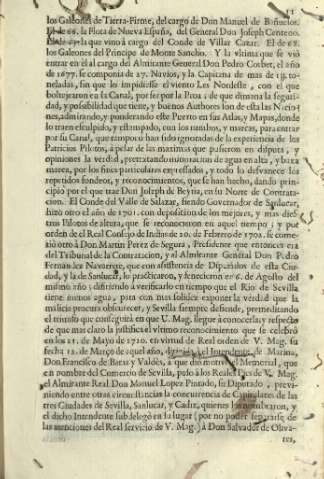 los Galeones de Tierra-Firme, del cargo de Don Manuel de Bañuelos.
El de 66. la Flota de Nueva España, del General Don Joseph Centeno.
la que vino à cargo del Conde de Villar Cazar. El de 68.
los Galeones del Principe de Monte Sancho. Y la vltima que se viò
entrar en èl al cargo del Almirante General Don Pedro Corbet, el año
de 1677. se componia de 27. Navios, y la Capitana de mas de
neladas, sin que lo impidiesse el viento Les Nordeste, con el que
boltejearon en la Canal, por ser por la Proa: de que dimana la seguri-
dad, y possibilidad que tiene, y buenos Authores son de esta las Nacio-
nes, admirando, y ponderando este Puerto en sus Atlas, y Mapas, donde
lo traen esculpido, y estampado, con los rumbos, y marcas, para entrar
por su Canal, que tampoco han sido ignoradas de la experiencia de los
Patricios Pilotos, à pesar de las maximas que pusieron en disputa, y
opiniones la verdad, pretextando minoracion de agua en alta, y baxa
marea, por los fines particulares expressados, y todo lo desvanece los
repetidos sondeos, y reconocimientos, que se han hecho, dando prin-
cipio por el que trae Don Joseph de Beytia, en su Norte de Contrata-
cion. El Conde del Valle de Salazar, siendo Governador de Sanlucar,
hizo otro el año de 1701. con deposicion de los mejores, y mas dies-
tros Pilotos de altura, que se reconocieron en aquel tiempo; y por
orden de el Real Consejo de Indias de 10. de Febrero de 1702. se come-
tiò otro à Don Martin Perez de Segura, Presidente que entonces era
del Tribunal de la Contratacion, y al Almirante General Don Pedro
Fernandez Navarrete, que con assistencia de Diputados de esta Ciu-
dad, y la de Sanlucar, lo practicaron, y fenecieron en 6. de Agosto del
mismo año; difiriendo à verificarlo en tiempo que el Rio de Sevilla
tiene menos agua, para con mas solidèz exponer la verdad que la
malicia procura obscurecer, y Sevilla siempre defiende, premeditando
el triunfo que conseguirà en que V. Mag. llegue à conocerla; y respecto
de que mas claro la justifica el vltimo reconocimiento que se celebrò
en los 21. de Mayo de 1720. en virtud de Real orden de V. Mag. su
fecha 12. de Março de aquel año, dirigida al Intendente de Marina,
Don Francisco de Baras y Valdès, à que diò motivo el Memorial, que
en nombre del Comercio de Sevilla, puso à los Reales Pies de V. Mag.
el Almirante Real Don Manuel Lopez Pintado, su Diputado, previ-
niendo entre otras circunstancias la concurrencia de Capitulares de las
tres Ciudades de Sevilla, Sanlucar, y Cadiz, quienes los nombraron, y
el dicho Intendente subdelegò en su lugar (por no poder separarse de
las atenciones del Real servicio de V. Mag.) à Don Salvador de Oliva-
res,